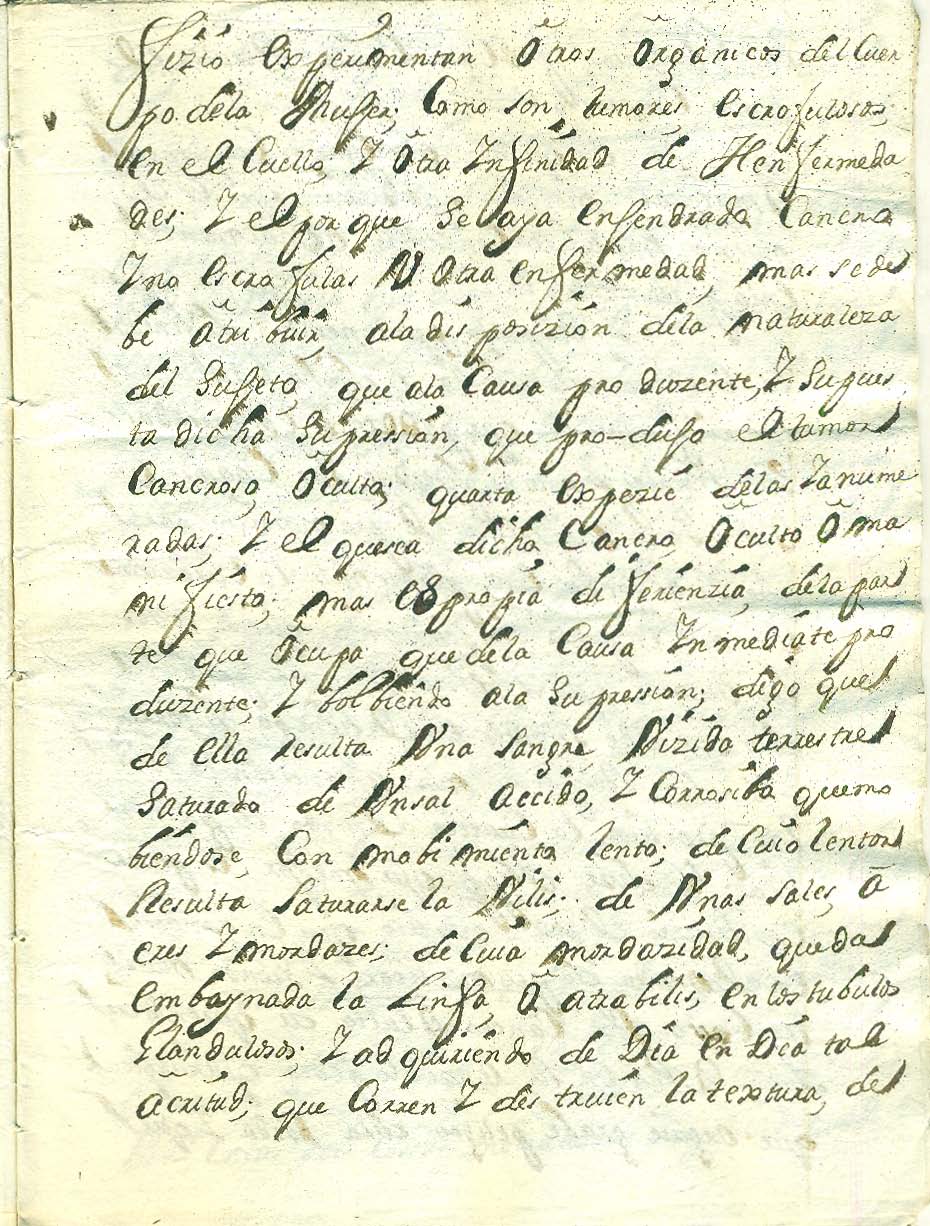 fizio experimentan otros organicos del Cuer
po dela Muger; Como son, tumores, escrofulosos,
en el Cuello, Y otra Ynfinidad de Henfermeda
des; Y el por que se aya enjendrado Cancro
Y no escrofulas V otra enfermedad, mas se de
be atribuir, ala disposizion dela naturaleza
del Sugeto, que ala Causa produzente, Y Supues
ta dicha Supression, que pro-dujo el tumor
Cancroso, oculto; quarta expezie delas Yanume
radas; Y el quesea dicho Cancro, oculto o ma
nifiesto; mas es propia diferienzia, dela par
te que ocupa que dela Causa Ynmediate pro
duzente; Y bolbiendo ala Supression; digo que
de ella resulta Vna sangre Vizida terrestre
Saturado de Vnsal accido, Y Corrosiba quemo
biendose Con mobimiento lento; de Cuio lentor
Resulta Saturarse la Vilis; de Vnas sales, a
cres Y mordazes; de Cuia mordazidad, queda
embaynada la Linfa, o atrabilis, en los tubulos
Glandulosos; Y adquiriendo de Dia en Dia tal
acritud; que Corren Y destruien la textura, de